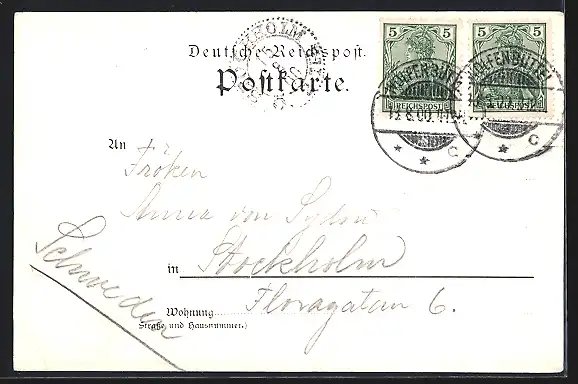 Deutsche Reichspost.
Postkarte.
5 5
REICHSPOST
WOLFENBÜTTEL
WOLFENBÜTTEL
* * C
* * C
An
Fröken
Anna von Sydow
in Stockholm
Wohnung Floragatan 6.
(Straße und Hausnummer.)
Schweden